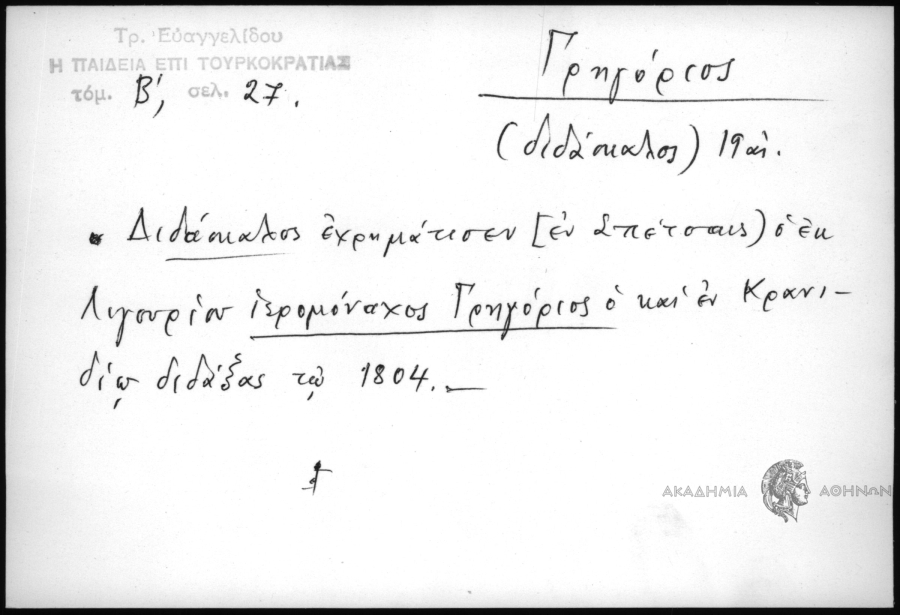 Τρ. Εὐαγγελίδου
Η ΠΑΙΔΕΙΑ ΕΠΙ ΤΟΥΡΚΟΚΡΑΤΙΑΣ
τόμ. Β', σελ. 27.
Γρηγόριος
(διδάσκαλος) 19 αἰ.
Διδάσκαλος ἐχρημάτισεν [ἐν Σπέτσαις) ὁ ἐκ
Λιγουρίου ἱερομόναχος Γρηγόριος ὁ καὶ ἐν Κρανι-
δίῳ διδάξας τῷ 1804.—
ΑΚΑΔΗΜΙΑ ΑΘΗΝΩΝ